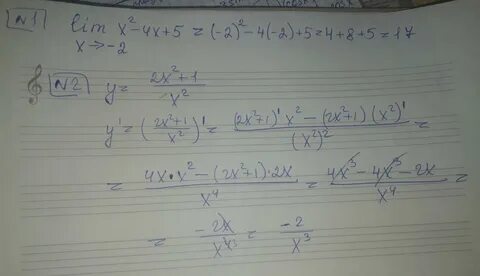 №1 lim x² - 4x + 5 = (-2)² - 4(-2) + 5 = 4 + 8 + 5 = 17
x → -2
№2 y = (2x² + 1) / x²
y' = ((2x² + 1) / x²)' = ((2x² + 1)' x² - (2x² + 1)(x²)') / (x²)² =
= (4x · x² - (2x² + 1) · 2x) / x⁴ = (4x³ - 4x³ - 2x) / x⁴ =
= -2x / x⁴³ = -2 / x³